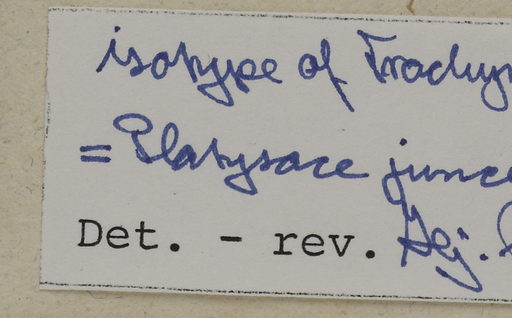 isotype of Trachym
= Platysace junce
Det. - rev. Hj.